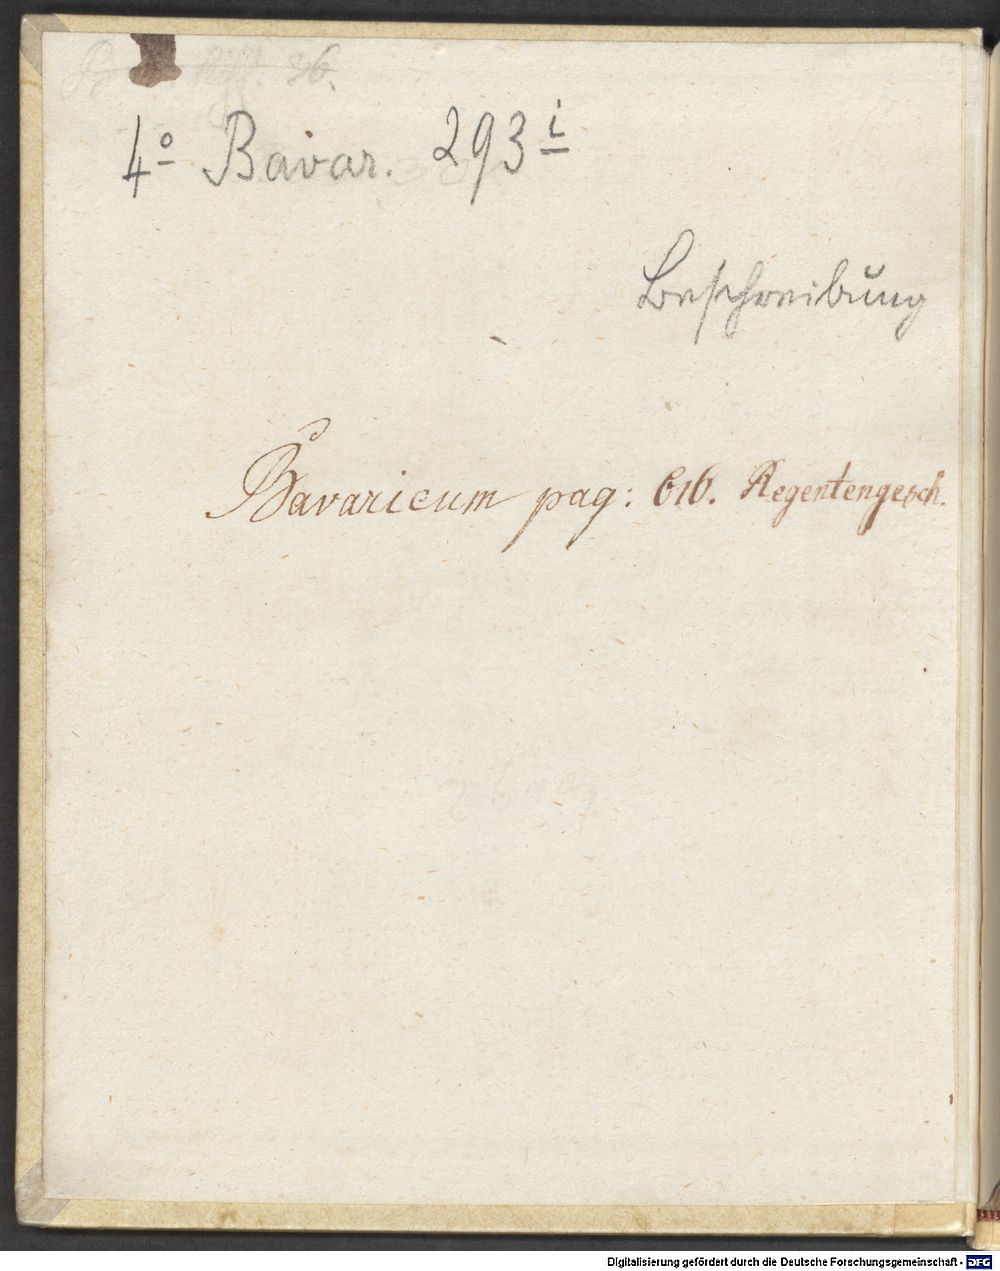 4º Bavar. 293 i
Beschreibung
Bavaricum pag: 616. Regentengesch.
Digitalisierung gefördert durch die Deutsche Forschungsgemeinschaft - DFG